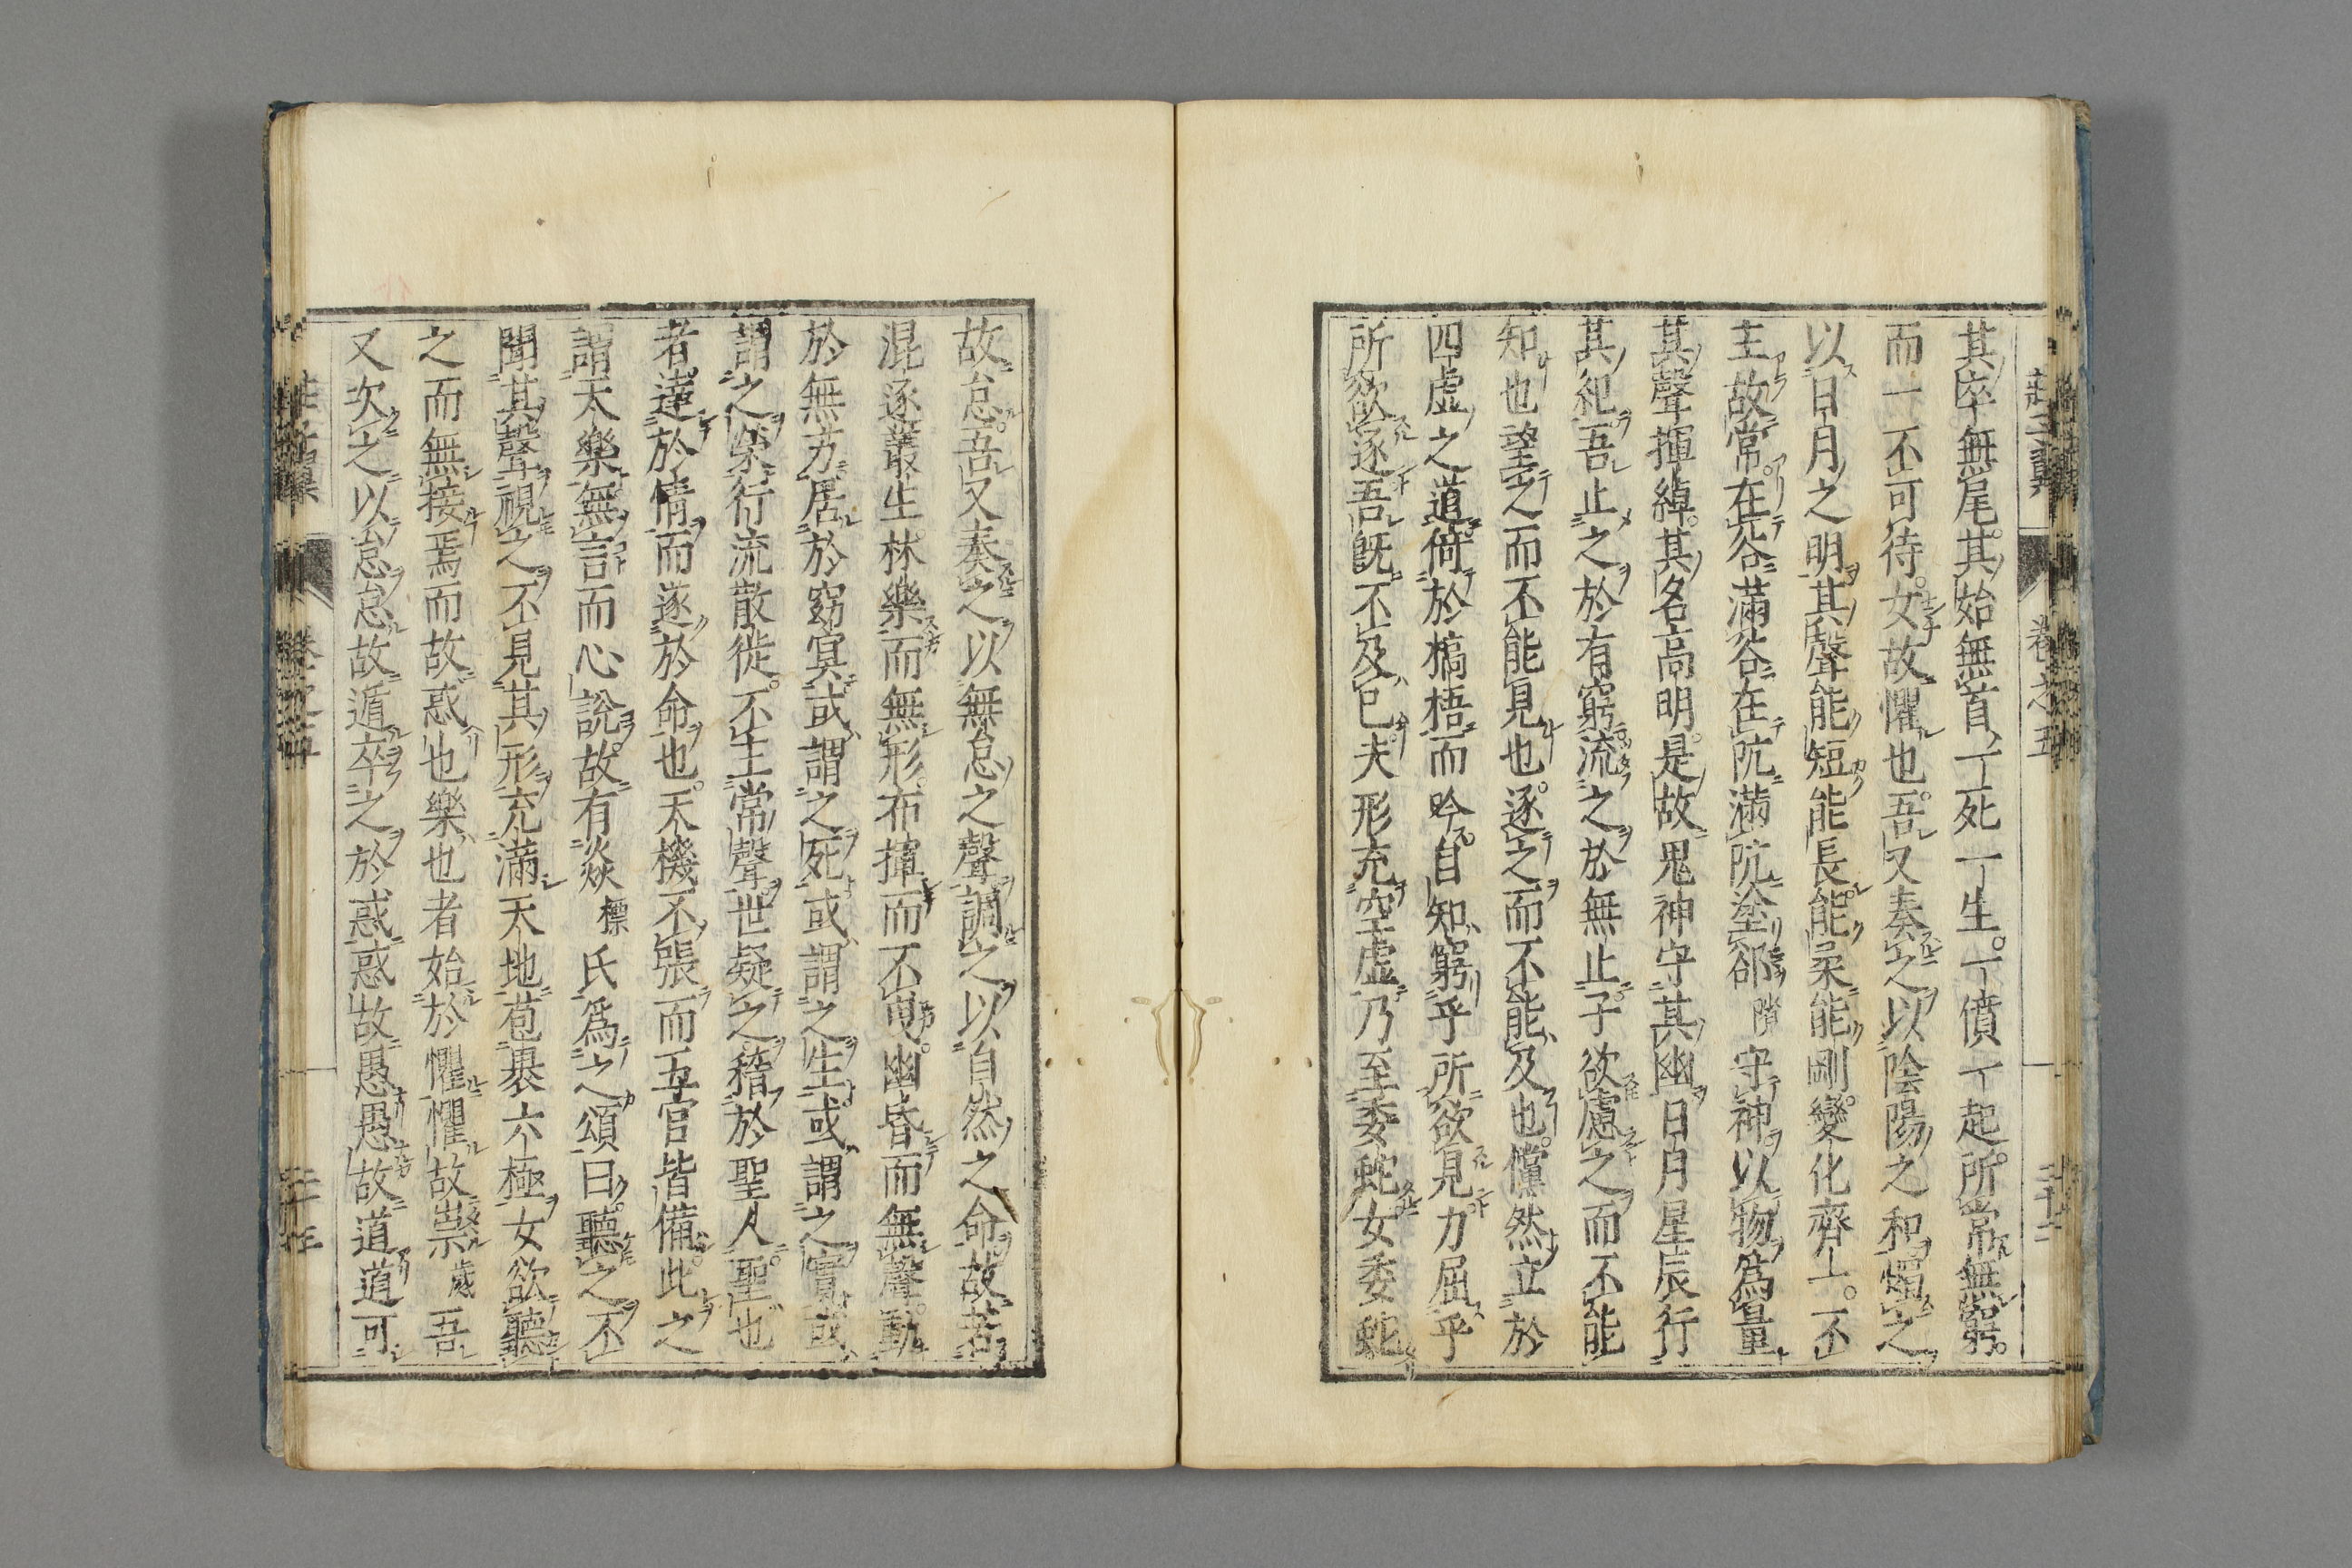 其卒無尾其始無首一死一生一僨一起所常無窮
而一不可待女故懼也吾又奏之以陰陽之和燭之
以日月之明其聲能短能長能柔能剛變化齊一不
主故常在谷滿谷在阬滿阬塗郤隙守神以物為量
其聲揮綽其名高明是故鬼神守其幽日月星辰行
其紀吾止之於有窮流之於無止子欲慮之而不能
知也望之而不能見也逐之而不能及也儻然立於
四虛之道倚於槁梧而吟目知窮乎所欲見力屈乎
所欲逐吾既不及已夫形充空虛乃至委蛇女委蛇
故怠吾又奏之以無怠之聲調之以自然之命故若
混逐叢生林樂而無形布揮而不曳幽昏而無聲動
於無方居於窈冥或謂之死或謂之生或謂之實或
謂之榮行流散徙不主常聲世疑之稽於聖人聖也
者達於情而遂於命也天機不張而五官皆備此之
謂天樂無言而心說故有焱標氏為之頌曰聽之不
聞其聲視之不見其形充滿天地苞裹六極女欲聽
之而無接焉而故惑也樂也者始於懼懼故祟歲吾
又次之以怠怠故遁卒之於惑惑故愚愚故道道可